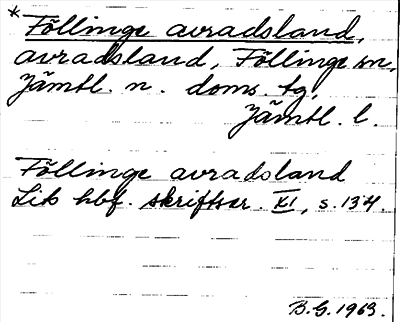 * Föllinge avradsland,
avradsland, Föllinge sn,
Jämtl. n. doms. tg,
Jämtl. l.
Föllinge avradsland
Lit hbf. skriftser. XI, s. 134.
B.G. 1963.